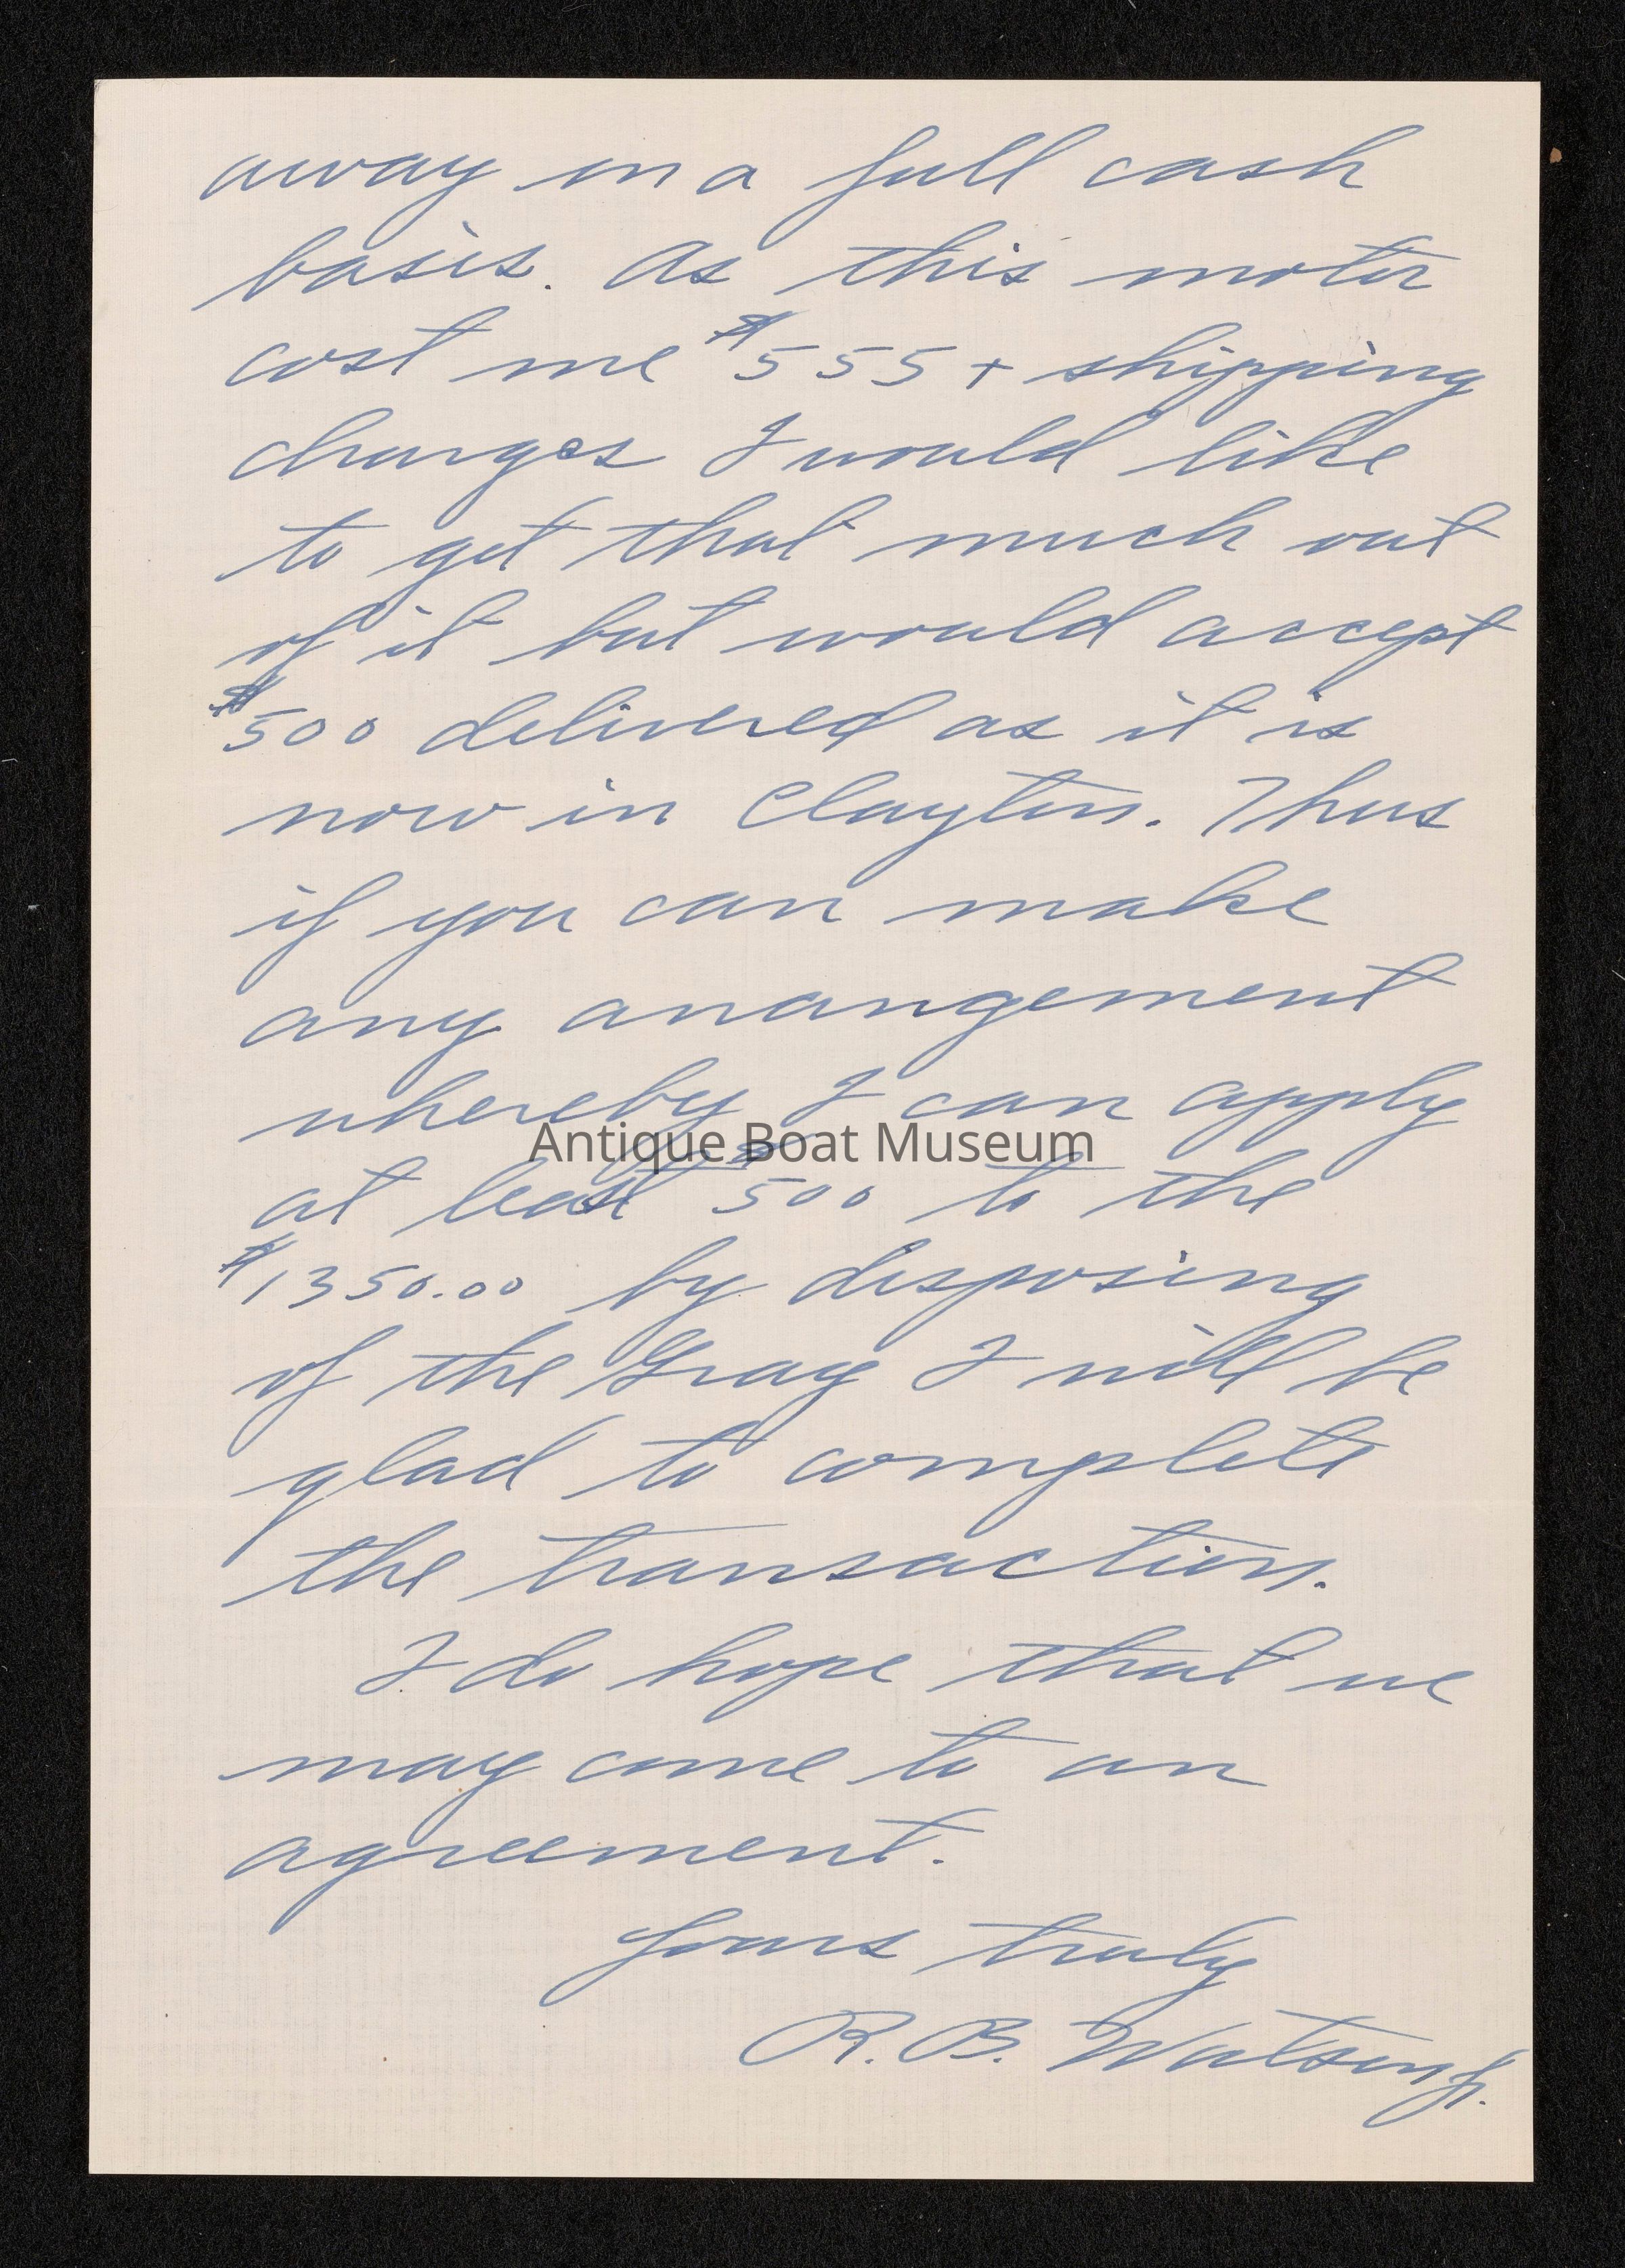 away on a full cash
basis. As this motor
cost me $555 + shipping
charges I would like
to get that much out
of it but would accept
$500 delivered as it is
now in Clayton. Thus
if you can make
any arrangement
whereby I can apply
Antique Boat Museum
at least $500 to the
$1350.00 by disposing
of the Gray I will be
glad to complete
the transaction.
I do hope that we
may come to an
agreement.
Yours truly
R. B. Watson Jr.